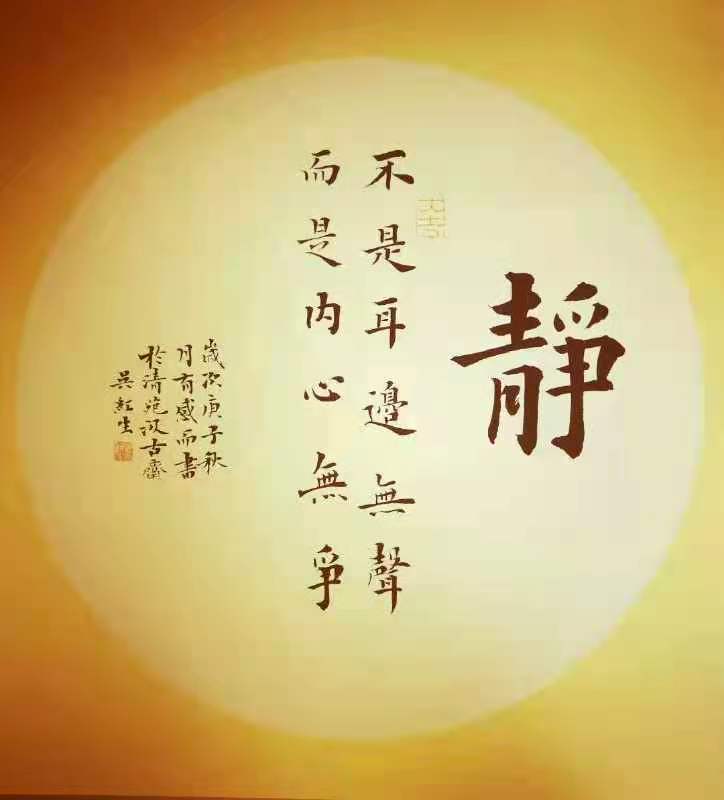 靜
不是耳邊無聲
而是内心無爭
歲次庚子秋
月有感而書
於清苑汲古齋
吳紅生